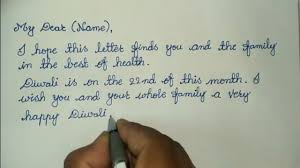 My Dear (Name),
I hope this letter finds you and the family
in the best of health.
Diwali is on the 22nd of this month. I
wish you and your whole family a very
happy Diwali